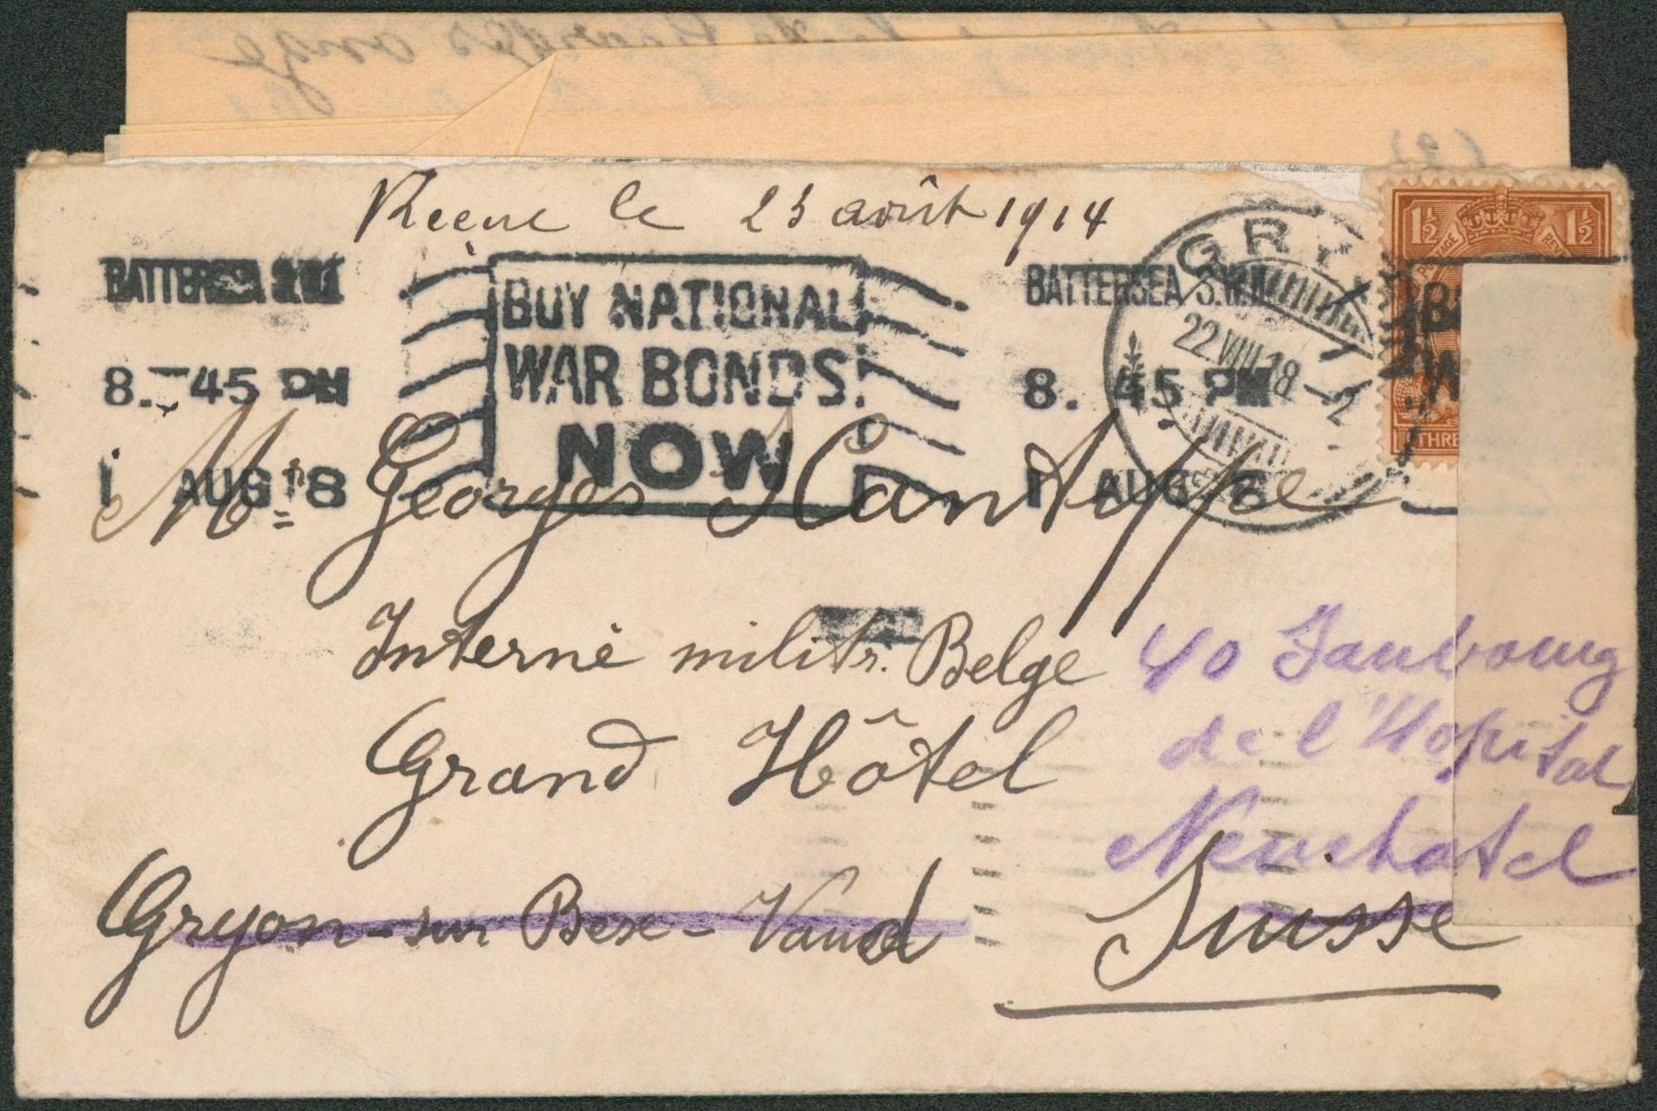 le 23 août 1914
1½ 1½
BATTERSEA S.W.11
8. 45 PM
1 AUG 18
BUY NATIONAL
WAR BONDS
NOW
BATTERSEA S.W.11
8. 45 PM
1 AUG 18
GRY
22 VIII 18
THRE
Mr Georges Xantippe
Interné militr. Belge
Grand Hôtel
Gryon-sur Bex-Vaud
Suisse
40 Faubourg
de l'Hopital
Neuchatel